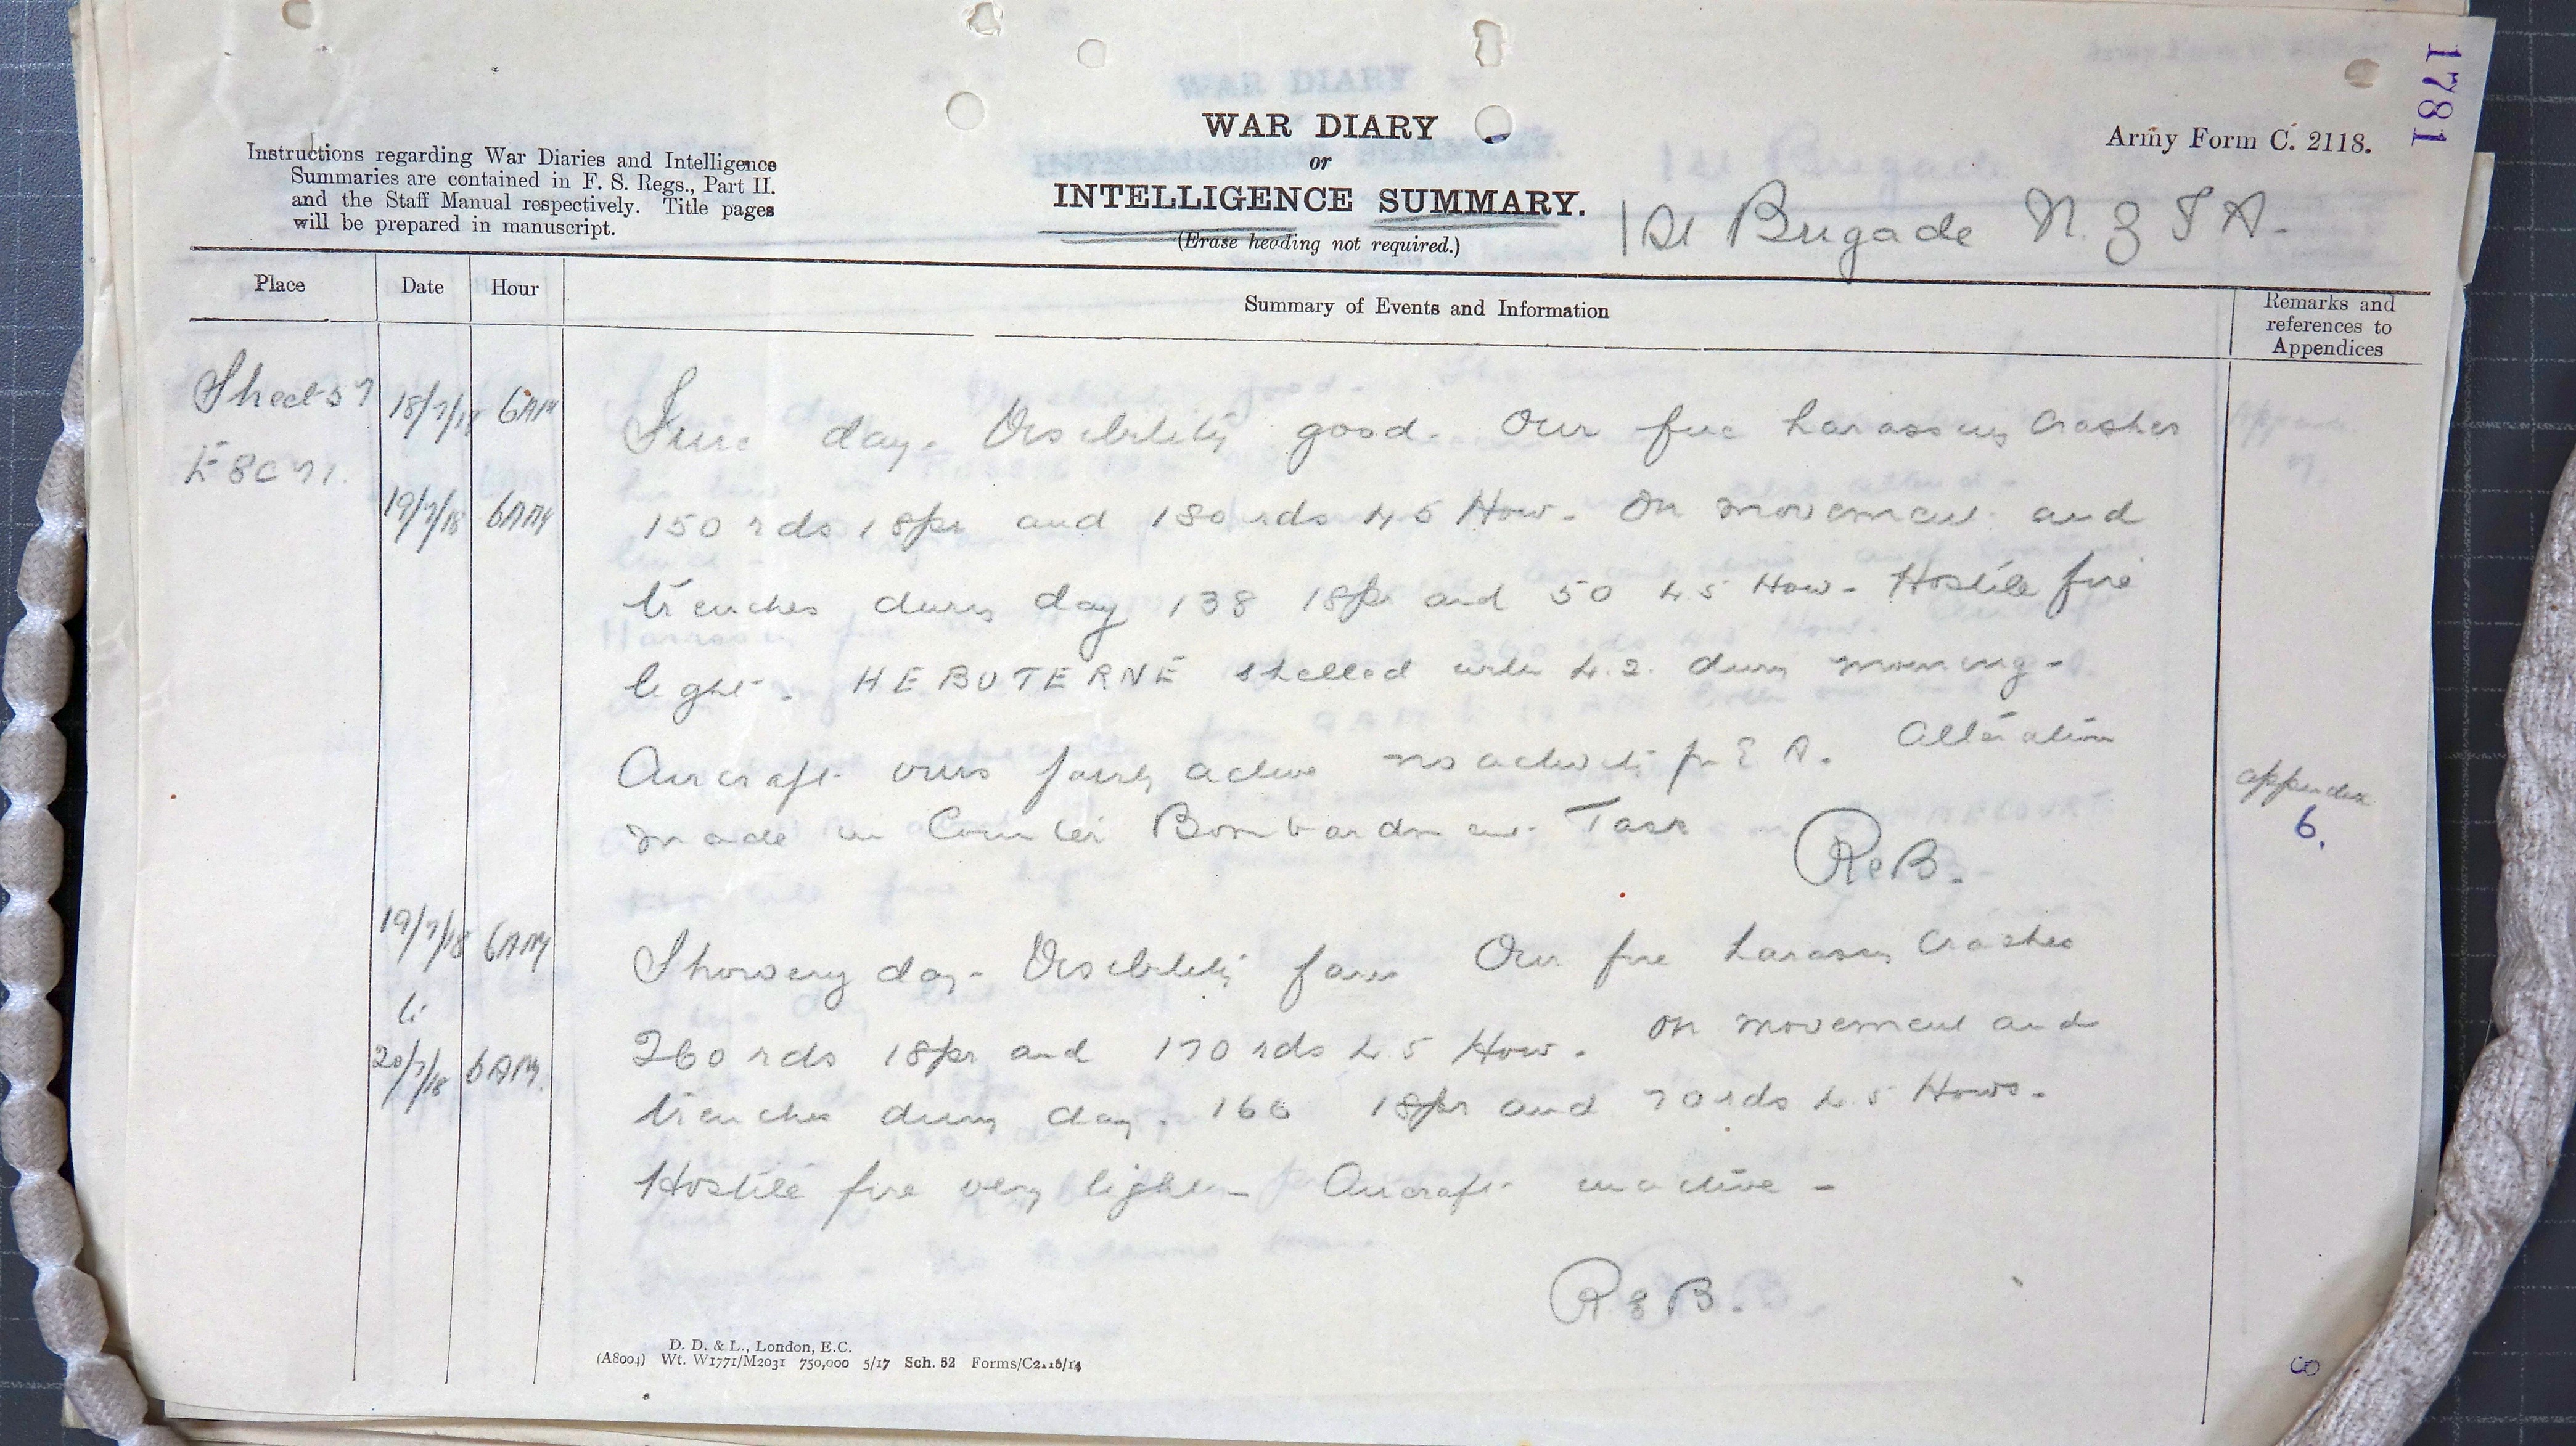 1781
Army Form C. 2118.
WAR DIARY
or
INTELLIGENCE SUMMARY.
(Erase heading not required.)
Instructions regarding War Diaries and Intelligence
Summaries are contained in F. S. Regs., Part II.
and the Staff Manual respectively. Title pages
will be prepared in manuscript.
1st Brigade N.Z.F.A.
Place Date Hour Summary of Events and Information Remarks and references to Appendices
Sheet 57 18/7/18 6AM Fine day. Visibility good. Our fire harassing crashes
19/7/18 6AM 150 rds 18pr and 180 rds 4.5 How. On movement and
trenches during day 138 18pr and 50 4.5 How. Hostile fire
light. HEBUTERNE shelled with 4.2. during morning.
Aircraft ours fairly active no activity for E.A. Alteration
made in Counter Bombardment Task
appendix
6.
19/7/18 6AM Showery day. Visibility fair Our fire harassing crashes
to
20/7/18 6AM. 260 rds 18pr and 170 rds 4.5 How. On movement and
trenches during day. 166 18pr and 70 rds 4.5 Hows.
Hostile fire very light - Aircraft inactive -
D. D. & L., London, E.C.
(A8004) Wt. W1771/M2031 750,000 5/17 Sch. 52 Forms/C2118/14
8